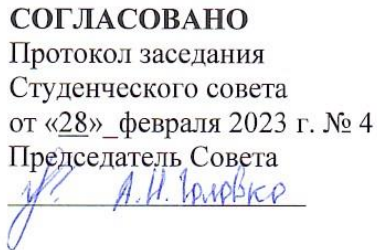 СОГЛАСОВАНО
Протокол заседания
Студенческого совета
от «28»_февраля 2023 г. № 4
Председатель Совета
А.Н. Головко